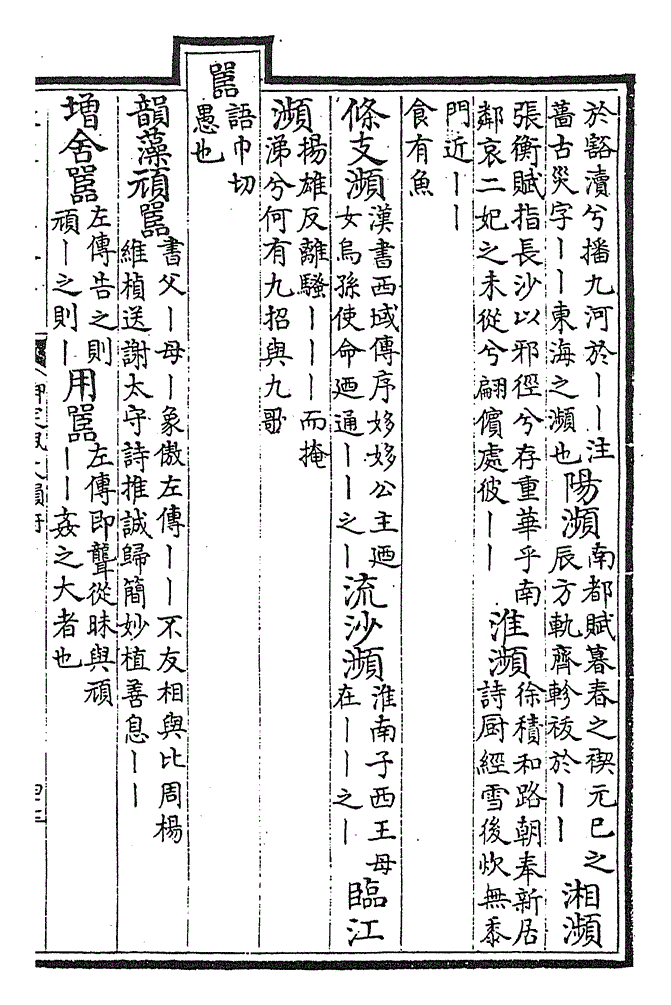 於谿瀆兮播九河於｜｜注
蕃古災字｜｜東海之瀕也
陽瀕
南都賦暮春之禊元巳之
辰方軌齊軫祓於｜｜
湘瀕
張衡賦指長沙以邪徑兮存重華乎南
鄰哀二妃之未從兮翩儐處彼｜｜
淮瀕
徐積和路朝奉新居
詩厨經雪後炊無黍
門近｜｜
食有魚
條支瀕
漢書西域傳序姼姼公主迺
女烏孫使命迺通｜｜之｜
流沙瀕
淮南子西王母
在｜｜之｜
臨江
瀕
揚雄反離騷｜｜｜而掩
涕兮何有九招與九歌
嚚
語巾切
愚也
韻藻
頑嚚
書父｜母｜象傲左傳｜｜不友相與比周楊
維楨送謝太守詩推誠歸簡妙植善息｜｜
增
舍嚚
左傳告之則
頑｜之則｜
用嚚
左傳即聾從昧與頑
｜｜姦之大者也